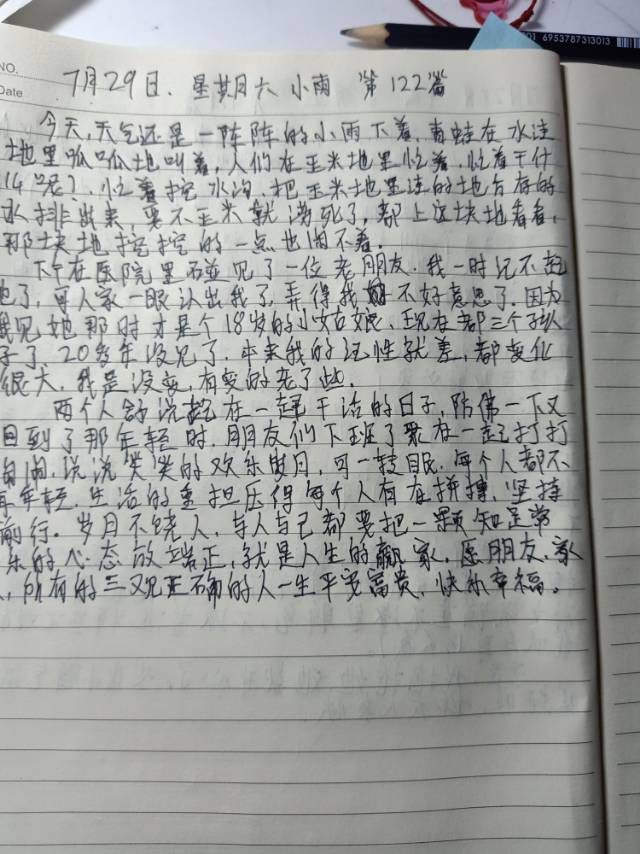 001 6953787313013
NO.
Date
7月29日. 星期月六 小雨 第122篇
今天,天气还是一阵阵的小雨下着,青蛙在水洼
地里呱呱地叫着,人们在玉米地里忙着,忙着干什
么呢?忙着挖水沟,把玉米地里洼的地台存的
水排出来,要不玉米就涝死了,都上这块地看看,
那块地挖挖的一点也闲不着。
下午在医院里碰见了一位老朋友,我一时记不起
她了,可人家一眼认出我了,弄得我不好意思了.因为
我见她那时才是个18岁的小姑娘,现在都三个孩
子了,20多年没见了,本来我的记性就差,都变化
很大,我是没变,有变的老了些.
两个人说起在一起干活的日子,仿佛一下又
回到了那年轻时,朋友们下班了聚在一起打打
闹闹,说说笑笑的欢乐岁月,可一转眼,每个人都不
年轻,生活的重担压得每个人有在拼搏,坚持
前行。岁月不饶人,与人与己都要把一颗知足常
乐的心态放端正,就是人生的赢家,愿朋友,家
人,所有的三观正确的人一生平安富贵,快乐幸福。